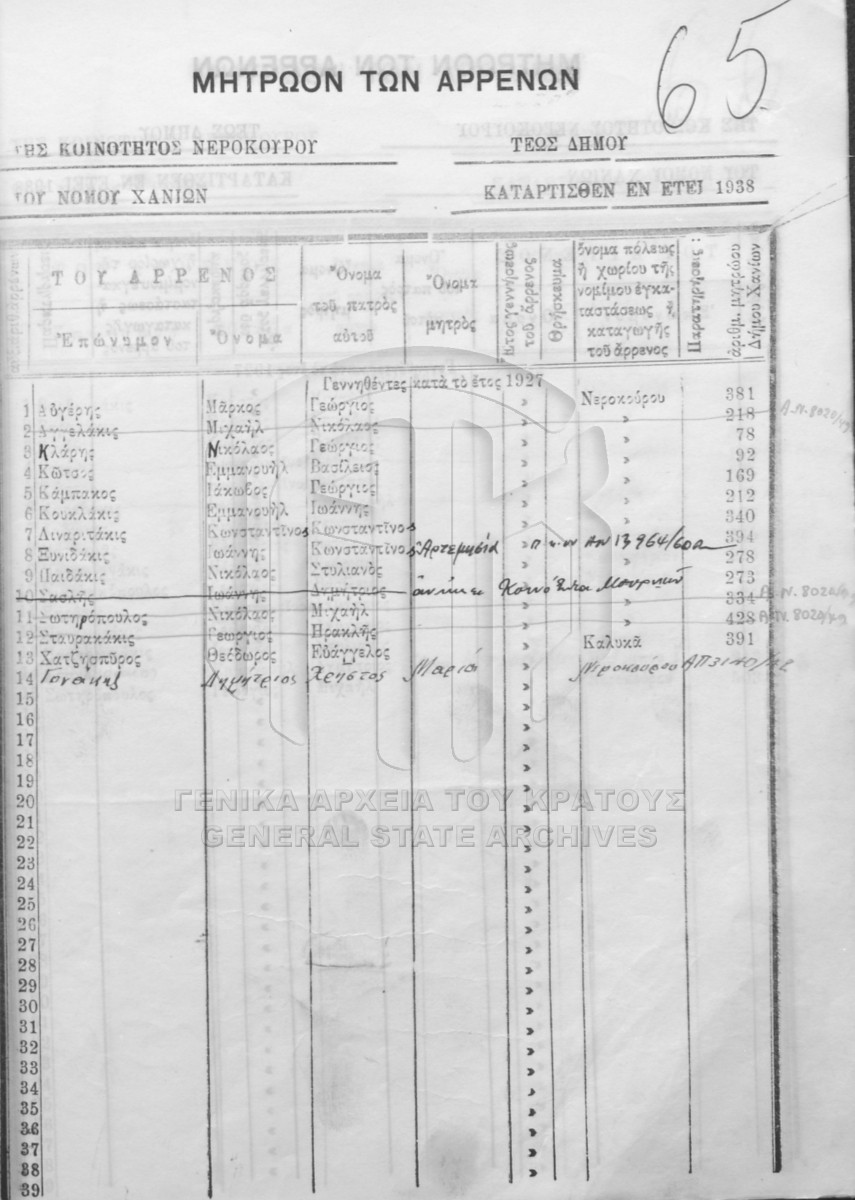 65
ΜΗΤΡΩΟΝ ΤΩΝ ΑΡΡΕΝΩΝ
ΤΗΣ ΚΟΙΝΟΤΗΤΟΣ ΝΕΡΟΚΟΥΡΟΥ ΤΕΩΣ ΔΗΜΟΥ
ΤΟΥ ΝΟΜΟΥ ΧΑΝΙΩΝ ΚΑΤΑΡΤΙΣΘΕΝ ΕΝ ΕΤΕΙ 1938
ΤΟΥ ΑΡΡΕΝΟΣ
Ἐπώνυμον
Ὄνομα
Ὄνομα
τοῦ πατρὸς
αὐτοῦ
Ὄνομα
μητρὸς
Ἔτος γεννήσεως
τοῦ ἄρρενος
Θρήσκευμα
ὄνομα πόλεως
ἢ χωρίου τῆς
νομίμου ἐγκα-
ταστάσεως ἢ
καταγωγῆς
τοῦ ἄρρενος
Παρατηρήσεις
ἀριθμ. μητρώου
Δήμου Χανίων
Γεννηθέντες κατὰ τὸ ἔτος 1927
1 Αὐγέρης Μᾶρκος Γεώργιος » Νεροκούρου 381
2 Ἀγγελάκις Μιχαὴλ Νικόλαος » » 218 Α.Ν. 8020/
3 Κλάρης Νικόλαος Γεώργιος » » 78
4 Κῶτσος Ἐμμανουὴλ Βασίλειος » » 92
5 Κάμπακος Ἰάκωβος Γεώργιος » » 169
6 Κουκλάκις Ἐμμανουὴλ Ἰωάννης » » 212
7 Λιναριτάκις Κωνσταντῖνος Κωνσταντῖνος » » 340
8 Ξυνιδάκις Ἰωάννης Κωνσταντῖνος Ἀρτεμησία ΑΝ 13964/60 394
9 Παιδάκις Νικόλαος Στυλιανὸς » » 278
10 Σαολῆς Ἰωάννης Δημήτριος ἀνήκει Κοινότητα Μουρνιῶν 273
11 Σωτηρόπουλος Νικόλαος Μιχαὴλ » » 334 Α.Ν. 8020/
12 Σταυρακάκις Γεώργιος Ἡρακλῆς » » 428 Α.Ν. 8020/
13 Χατζησπῦρος Θεόδωρος Εὐάγγελος » Καλυκᾶ 391
14 Γονάκης Δημήτριος Χρῆστος Μαρία » Νεροκούρου ΑΠ 3140/42
15 »
16 »
17 »
18 »
19 »
20 »
21 »
22 »
23 »
24 »
25 »
26 »
27 »
28 »
29 »
30 »
31 »
32 »
33 »
34 »
35 »
36 »
37 »
38 »
39
ΓΕΝΙΚΑ ΑΡΧΕΙΑ ΤΟΥ ΚΡΑΤΟΥΣ
GENERAL STATE ARCHIVES